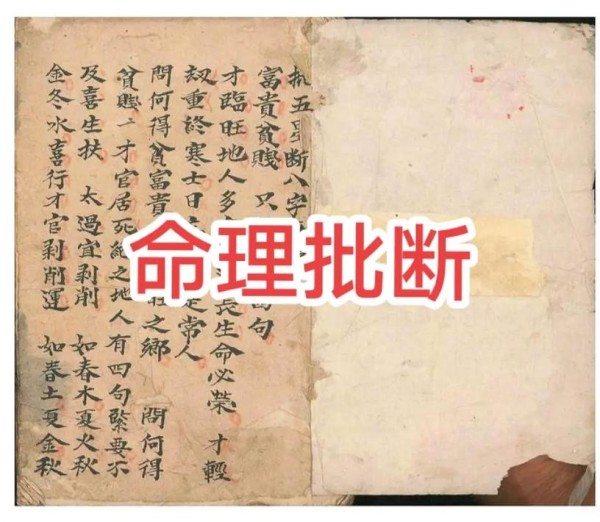 五星断八字
富貴貧賤 只 句
才臨旺地人多 長生命必榮 才輕
刼重終寒士日 是常人
問何得貧富貴 之鄉 問何得
貧賤一才官居死絕之地人有四句緊要不
及喜生扶 太過宜剥削 如春木夏火秋
金冬水喜行才官剥削運 如春土夏金秋
命理批断